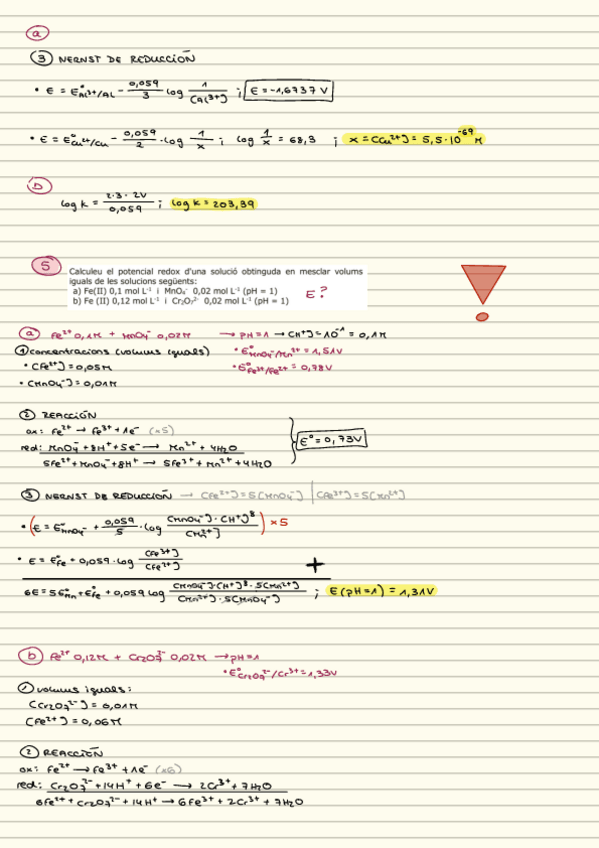 a
③ NERNST DE REDUCCIÓN
• E = E°Al3+/Al - 0,059/3 log 1/[Al3+] ; E = -1,6737 V
• E = E°Cu2+/Cu - 0,059/2 · log 1/x ; log 1/x = 68,3 ; x = [Cu2+] = 5,5·10^-69 M
b
log K = 2·3·2V/0,059 ; log K = 203,39
5
Calculeu el potencial redox d'una solució obtinguda en mesclar volums
iguals de les solucions següents:
a) Fe(II) 0,1 mol L-1 i MnO4- 0,02 mol L-1 (pH = 1)
b) Fe (II) 0,12 mol L-1 i Cr2O7 2- 0,02 mol L-1 (pH = 1)
E?
a Fe2+ 0,1M + MnO4- 0,02M → pH=1 → [H+]=10^-1 = 0,1M
① concentracions (volums iguals) • E°MnO4-/Mn2+ = 1,51V
• [Fe2+] = 0,05M • E°Fe3+/Fe2+ = 0,78V
• [MnO4-] = 0,01M
② REACCIÓN
ox: Fe2+ → Fe3+ + 1e- (x5)
red: MnO4- + 8H+ + 5e- → Mn2+ + 4H2O
E° = 0,73V
5Fe2+ + MnO4- + 8H+ → 5Fe3+ + Mn2+ + 4H2O
③ NERNST DE REDUCCIÓN → [Fe2+] = 5[MnO4-] | [Fe3+] = 5[Mn2+]
• (E = E°MnO4- + 0,059/5 · log [MnO4-]·[H+]^8/[Mn2+]) x5
• E = E°Fe + 0,059 · log [Fe3+]/[Fe2+] +
6E = 5E°Mn + E°Fe + 0,059 log [MnO4-]·[H+]^8·5[Mn2+]/[Mn2+]·5[MnO4-] ; E(pH=1) = 1,31V
b Fe2+ 0,12M + Cr2O7 2- 0,02M → pH=1
• E°Cr2O7 2-/Cr3+ = 1,33V
① volums iguals:
[Cr2O7 2-] = 0,01M
[Fe2+] = 0,06M
② REACCIÓN
ox: Fe2+ → Fe3+ + 1e- (x6)
red: Cr2O7 2- + 14H+ + 6e- → 2Cr3+ + 7H2O
6Fe2+ + Cr2O7 2- + 14H+ → 6Fe3+ + 2Cr3+ + 7H2O